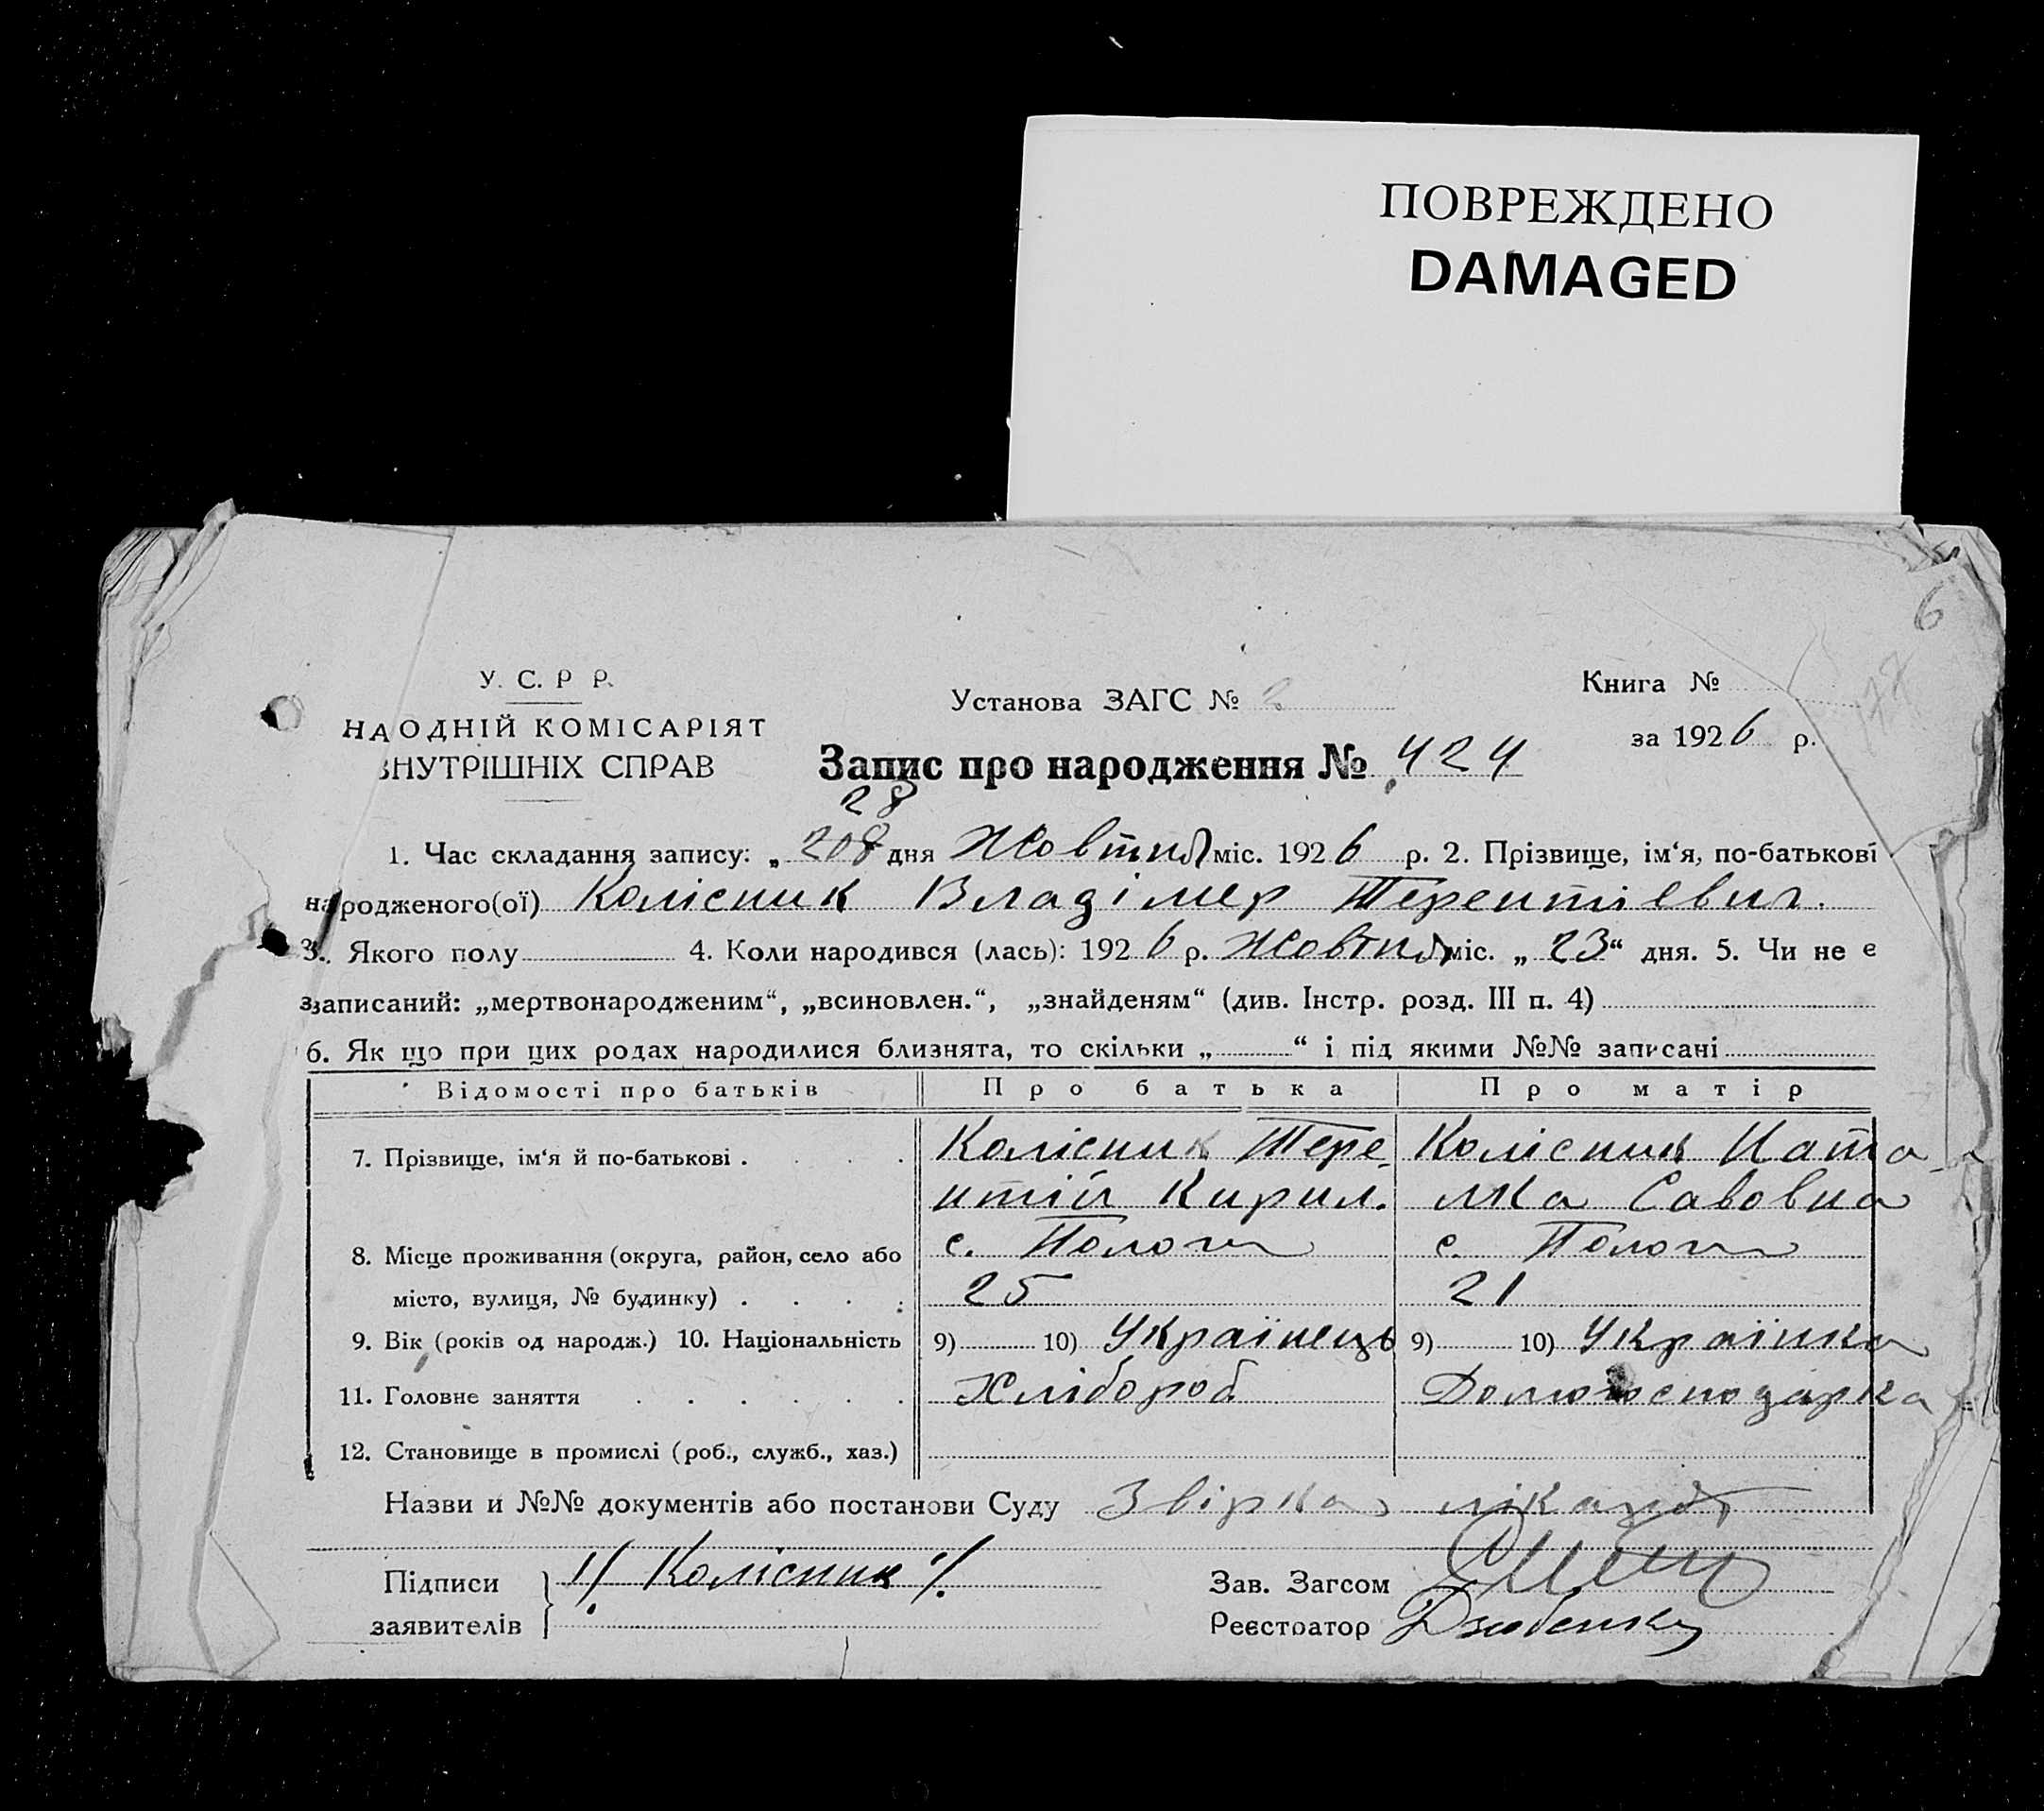 ПОВРЕЖДЕНО
DAMAGED
6
178
У. С. Р Р.
НАОДНІЙ КОМІСАРІЯТ
ВНУТРІШНІХ СПРАВ
Установа ЗАГС № 2
Книга №
за 1926 р.
Запис про народження № 424
28
1. Час складання запису: „ 208 дня Жовтня міс. 1926 р. 2. Прізвище, ім‘я, по-батькові
народженого(ої) Колісник Владімер Терентіевич.
3. Якого полу 4. Коли народився (лась): 1926 р. Жовтня міс. „ 23 “ дня. 5. Чи не є
записаний: „мертвонародженим“, „всиновлен.“, „знайденям“ (див. Інстр. розд. III п. 4)
6. Як що при цих родах народилися близнята, то скільки „ “ і під якими №№ записані
Відомості про батьків Про батька Про матір
7. Прізвище, ім‘я й по-батькові . Колісник Тере- Колісник Ната-
нтій Кирил. лка Савовна
8. Місце проживання (округа, район, село або с. Пологи с. Пологи
місто, вулиця, № будинку) 25 21
9. Вік (років од народж.) 10. Національність 9) 10) Українець 9) 10) Українка
11. Головне заняття Хлібороб Домогосподарка
12. Становище в промислі (роб., служб., хаз.)
Назви й №№ документів або постанови Суду Звірка лікаря
Підписи Колісник Зав. Загсом
заявителів Реєстратор